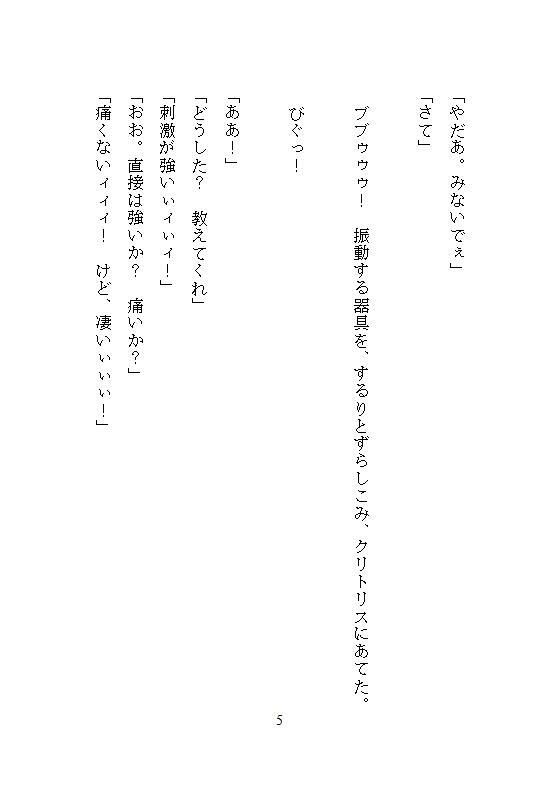 「やだあ。みないでぇ」
「さて」
ブブゥゥゥ！　振動する器具を、するりとずらしこみ、クリトリスにあてた。
びぐっ！
「ああ！」
「どうした？　教えてくれ」
「刺激が強いぃィぃィ！」
「おお。直接は強いか？　痛いか？」
「痛くないィィィ！　けど、凄いぃぃぃ！」
5